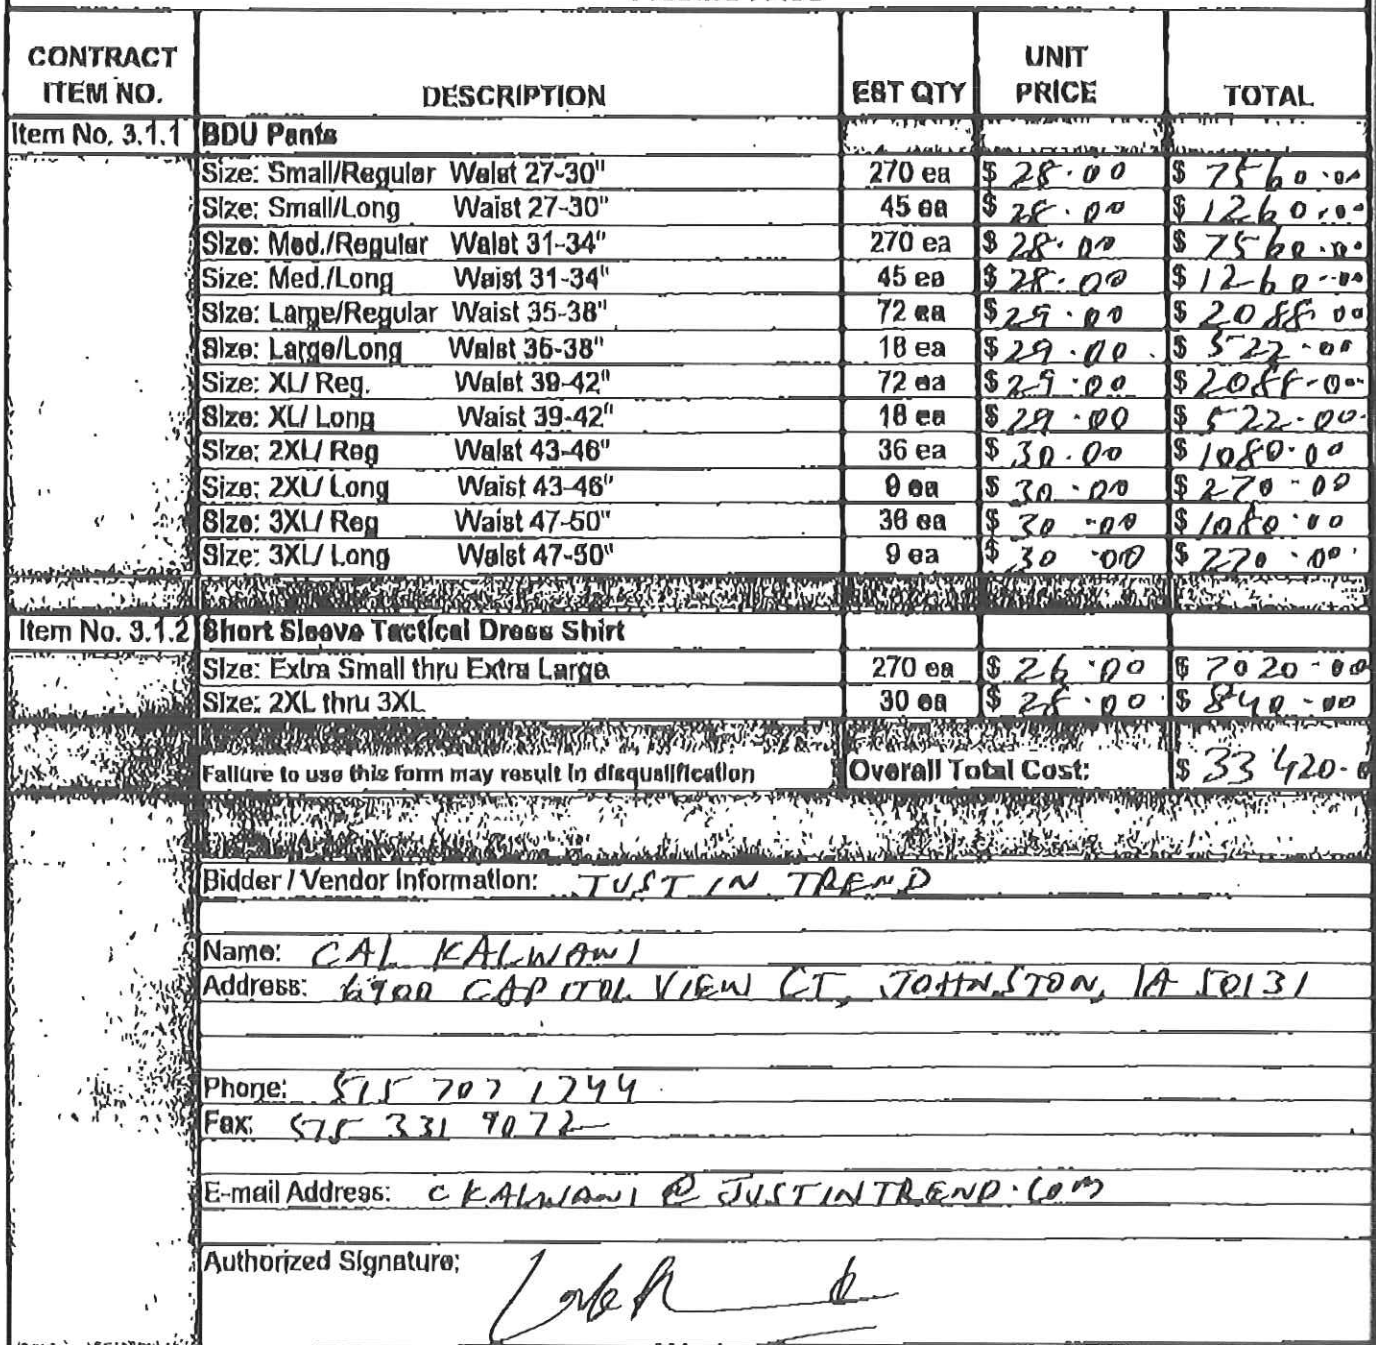 CONTRACT ITEM NO. DESCRIPTION EST QTY UNIT PRICE TOTAL
Item No. 3.1.1 BDU Pants
Size: Small/Regular Waist 27-30" 270 ea $ 28.00 $ 7560.00
Size: Small/Long Waist 27-30" 45 ea $ 28.00 $ 1260.00
Size: Med./Regular Waist 31-34" 270 ea $ 28.00 $ 7560.00
Size: Med./Long Waist 31-34" 45 ea $ 28.00 $ 1260.00
Size: Large/Regular Waist 35-38" 72 ea $ 29.00 $ 2088.00
Size: Large/Long Waist 35-38" 18 ea $ 29.00 $ 522.00
Size: XL/ Reg. Waist 39-42" 72 ea $ 29.00 $ 2088.00
Size: XL/ Long Waist 39-42" 18 ea $ 29.00 $ 522.00
Size: 2XL/ Reg Waist 43-46" 36 ea $ 30.00 $ 1080.00
Size: 2XL/ Long Waist 43-46" 9 ea $ 30.00 $ 270.00
Size: 3XL/ Reg Waist 47-50" 36 ea $ 30.00 $ 1080.00
Size: 3XL/ Long Waist 47-50" 9 ea $ 30.00 $ 270.00
Item No. 3.1.2 Short Sleeve Tactical Dress Shirt
Size: Extra Small thru Extra Large 270 ea $ 26.00 $ 7020.00
Size: 2XL thru 3XL 30 ea $ 28.00 $ 840.00
Failure to use this form may result in disqualification Overall Total Cost: $ 33 420.0
Bidder / Vendor Information: JUST IN TREND
Name: CAL KALWANI
Address: 6900 CAPITOL VIEW CT, JOHNSTON, IA 50131
Phone: 515 707 1744
Fax: 515 331 9072
E-mail Address: CKALWANI@JUSTINTREND.COM
Authorized Signature: